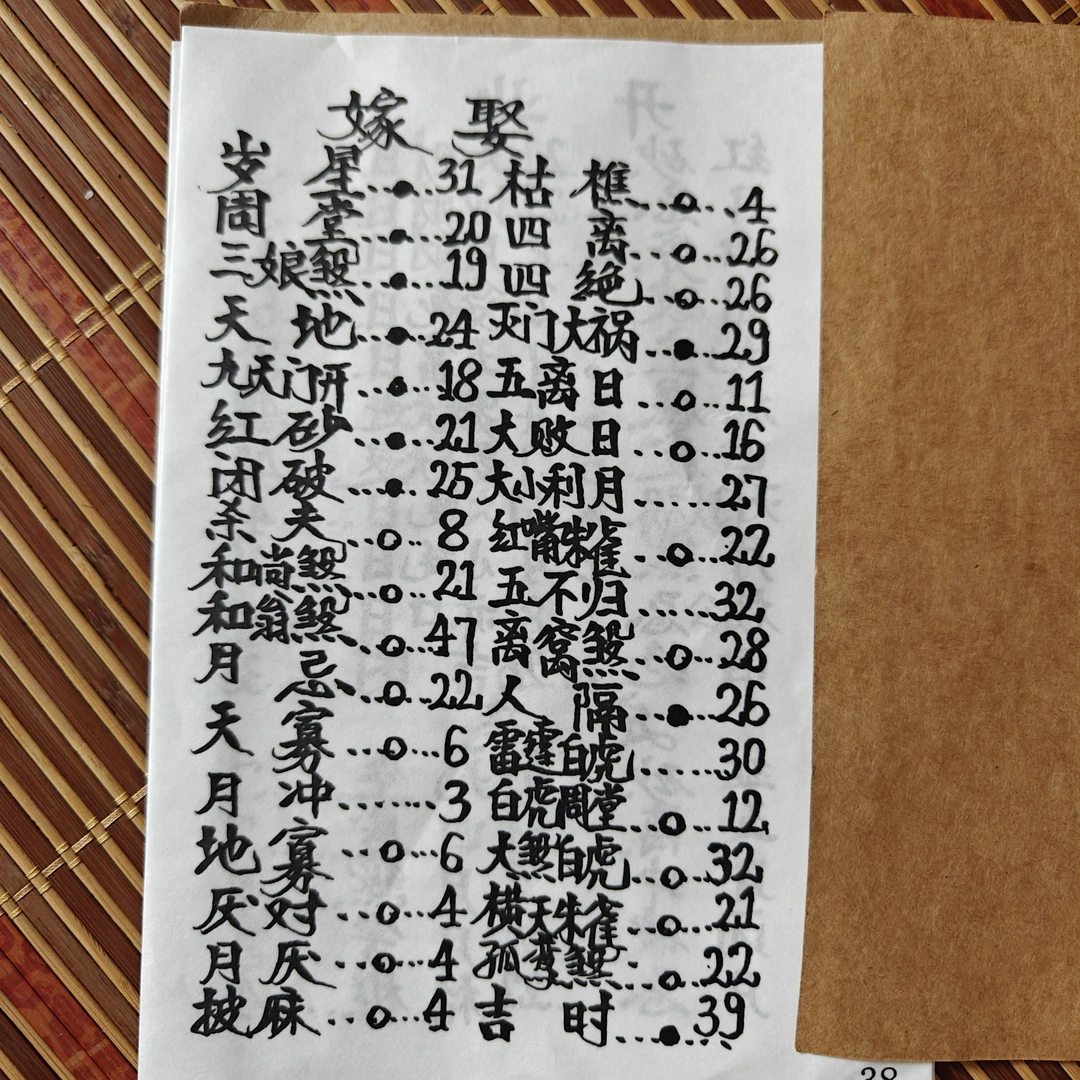 嫁 娶
岁 星...●...31 枯 樵...○...4
周 堂...●...20 四 离...○...26
三娘煞...●...19 四 绝...○...26
天 地...●...24 灭门大祸...●...29
九天门开...●...18 五离日...○...11
红砂...●...21 大败日...○...16
闭破...●...25 大小利月......27
杀夫...○...8 红嘴朱雀...○...22
和尚煞...○...21 五不归......32
和翁煞...○...47 离窝煞...○...28
月 忌...○...22 人 隔...●...26
天 寡...○...6 雷霆白虎......30
月 冲.......3 白虎周堂...○...12
地 寡...○...6 大煞白虎...○...32
厌对...○...4 横天朱雀...○...21
月厌...○...4 孤鸾煞...○...22
披麻...○...4 吉 时...●...39
38